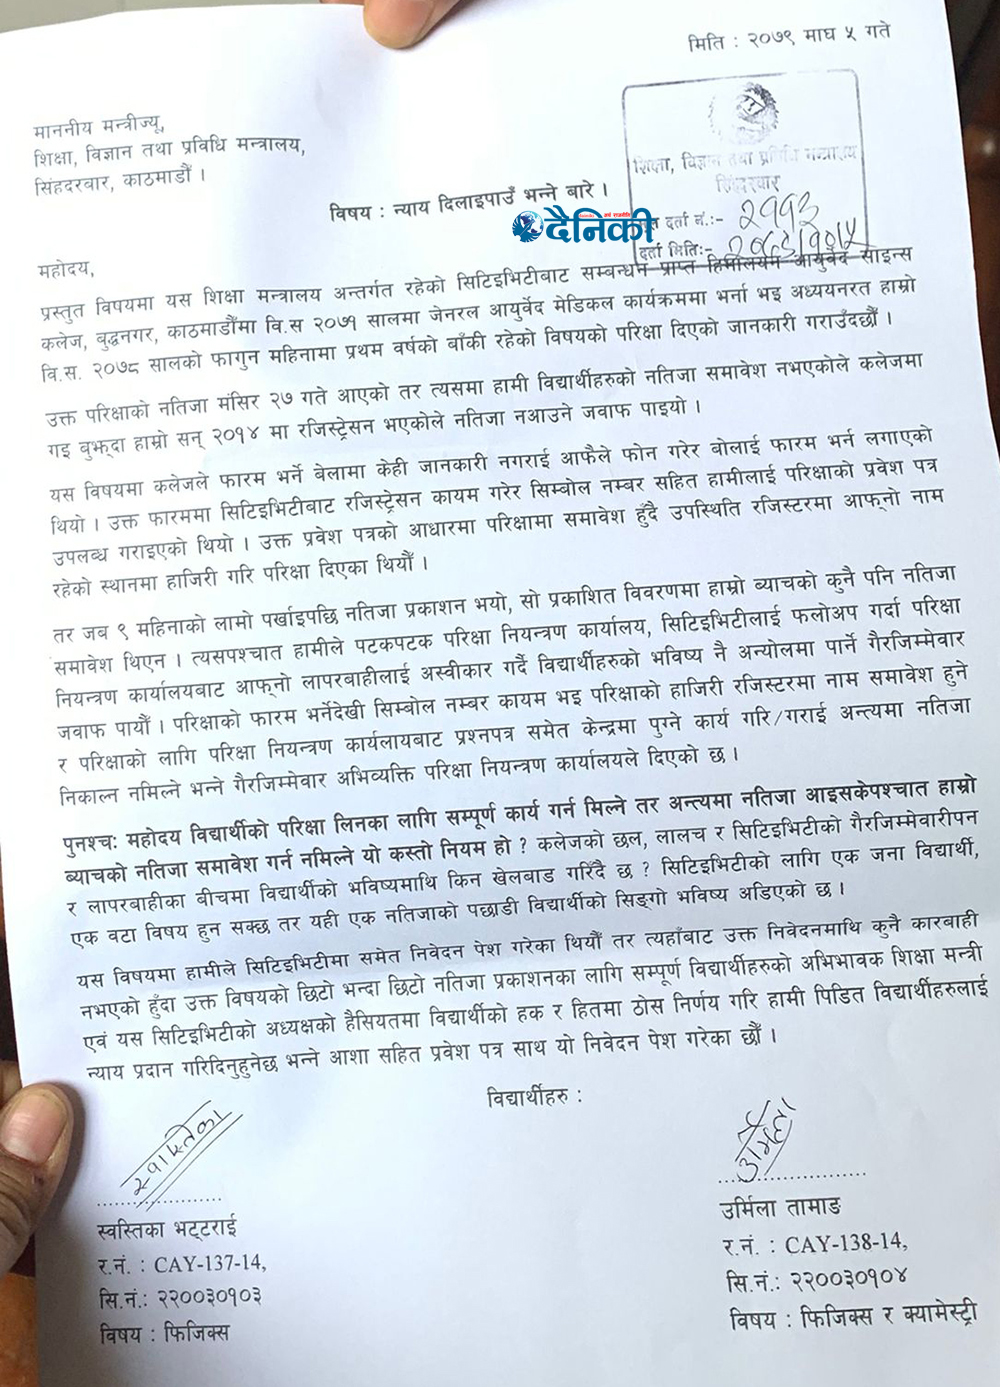 मिति : २०७९ माघ ५ गते
माननीय मन्त्रीज्यू,
शिक्षा, विज्ञान तथा प्रविधि मन्त्रालय,
सिंहदरबार, काठमाडौं ।
शिक्षा, विज्ञान तथा प्रविधि मन्त्रालय
सिंहदरबार
दर्ता नं.:- २११३
दर्ता मिति:- २०७९/१०/५
विषय : न्याय दिलाइपाउँ भन्ने बारे ।
दैनिकी
महोदय,
प्रस्तुत विषयमा यस शिक्षा मन्त्रालय अन्तर्गत रहेको सिटिइभिटीबाट सम्बन्धन प्राप्त हिमालयन आयुर्वेद साइन्स
कलेज, बुद्धनगर, काठमाडौंमा वि.स २०७१ सालमा जेनरल आयुर्वेद मेडिकल कार्यक्रममा भर्ना भइ अध्ययनरत हाम्रो
वि.स. २०७८ सालको फागुन महिनामा प्रथम वर्षको बाँकी रहेको विषयको परिक्षा दिएको जानकारी गराउँदछौं ।
उक्त परिक्षाको नतिजा मंसिर २७ गते आएको तर त्यसमा हामी विद्यार्थीहरुको नतिजा समावेश नभएकोले कलेजमा
गइ बुझ्दा हाम्रो सन् २०१४ मा रजिस्ट्रेसन भएकोले नतिजा नआउने जवाफ पाइयो ।
यस विषयमा कलेजले फारम भर्ने बेलामा केही जानकारी नगराई आफैले फोन गरेर बोलाई फारम भर्न लगाएको
थियो । उक्त फारममा सिटिइभिटीबाट रजिस्ट्रेसन कायम गरेर सिम्बोल नम्बर सहित हामीलाई परिक्षाको प्रवेश पत्र
उपलब्ध गराइएको थियो । उक्त प्रवेश पत्रको आधारमा परिक्षामा समावेश हुँदै उपस्थिति रजिस्टरमा आफ्नो नाम
रहेको स्थानमा हाजिरी गरि परिक्षा दिएका थियौं ।
तर जब ९ महिनाको लामो पर्खाइपछि नतिजा प्रकाशन भयो, सो प्रकाशित विवरणमा हाम्रो ब्याचको कुनै पनि नतिजा
समावेश थिएन । त्यसपश्चात हामीले पटकपटक परिक्षा नियन्त्रण कार्यालय, सिटिइभिटीलाई फलोअप गर्दा परिक्षा
नियन्त्रण कार्यालयबाट आफ्नो लापरबाहीलाई अस्वीकार गर्दै विद्यार्थीहरुको भविष्य नै अन्योलमा पार्ने गैरजिम्मेवार
जवाफ पायौं । परिक्षाको फारम भर्नेदेखी सिम्बोल नम्बर कायम भइ परिक्षाको हाजिरी रजिस्टरमा नाम समावेश हुने
र परिक्षाको लागि परिक्षा नियन्त्रण कार्यलायबाट प्रश्नपत्र समेत केन्द्रमा पुग्ने कार्य गरि/गराई अन्त्यमा नतिजा
निकाल्न नमिल्ने भन्ने गैरजिम्मेवार अभिव्यक्ति परिक्षा नियन्त्रण कार्यालयले दिएको छ ।
पुनश्चः महोदय विद्यार्थीको परिक्षा लिनका लागि सम्पूर्ण कार्य गर्न मिल्ने तर अन्त्यमा नतिजा आइसकेपश्चात हाम्रो
ब्याचको नतिजा समावेश गर्न नमिल्ने यो कस्तो नियम हो ? कलेजको छल, लालच र सिटिइभिटीको गैरजिम्मेवारीपन
र लापरबाहीका बीचमा विद्यार्थीको भविष्यमाथि किन खेलबाड गरिँदै छ ? सिटिइभिटीको लागि एक जना विद्यार्थी,
एक वटा विषय हुन सक्छ तर यही एक नतिजाको पछाडी विद्यार्थीको सिङ्गो भविष्य अडिएको छ ।
यस विषयमा हामीले सिटिइभिटीमा समेत निवेदन पेश गरेका थियौं तर त्यहाँबाट उक्त निवेदनमाथि कुनै कारबाही
नभएको हुँदा उक्त विषयको छिटो भन्दा छिटो नतिजा प्रकाशनका लागि सम्पूर्ण विद्यार्थीहरुको अभिभावक शिक्षा मन्त्री
एवं यस सिटिइभिटीको अध्यक्षको हैसियतमा विद्यार्थीको हक र हितमा ठोस निर्णय गरि हामी पिडित विद्यार्थीहरुलाई
न्याय प्रदान गरिदिनुहुनेछ भन्ने आशा सहित प्रवेश पत्र साथ यो निवेदन पेश गरेका छौं ।
विद्यार्थीहरु :
स्वास्तिका
उर्मिला
स्वस्तिका भट्टराई
र.नं. : CAY-137-14,
सि.नं.: २२००३०१०३
विषय : फिजिक्स
उर्मिला तामाङ
र.नं. : CAY-138-14,
सि.नं.: २२००३०१०४
विषय : फिजिक्स र क्यामेस्ट्री